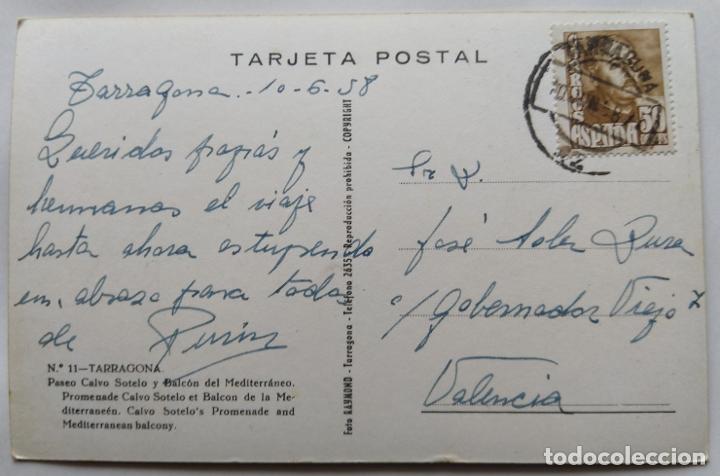 TARJETA POSTAL
Tarragona. 10-6-58
Queridos papás y
hermanas el viaje
hasta ahora estupendo
un abrazo para todos
de
N.º 11—TARRAGONA.
Paseo Calvo Sotelo y Balcón del Mediterráneo.
Promenade Calvo Sotelo et Balcon de la Me-
diterraneén. Calvo Sotelo's Promenade and
Mediterranean balcony.
Foto RAYMOND - Tarragona - Teléfono 2635 - Reproducción prohibida - COPYRIGHT
TARRAGONA
CORREOS
ESPAÑA
50
CTS
Sr D.
José Soler
c/ Gobernador Viejo 7
Valencia
todocoleccion